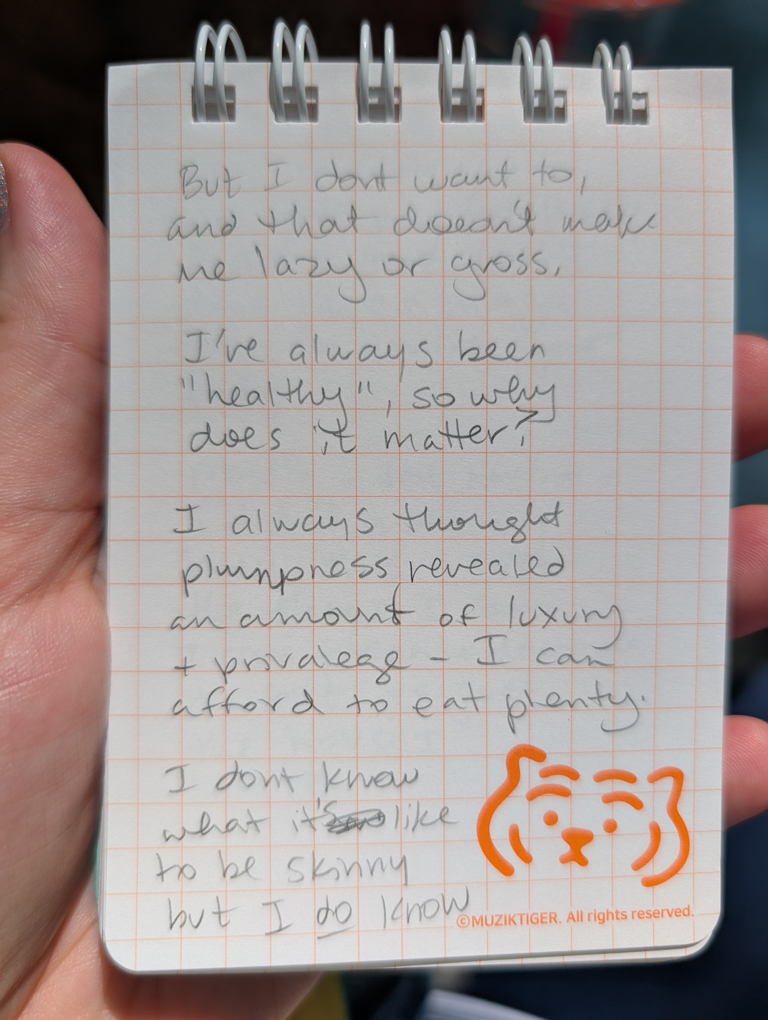 But I dont want to,
and that doesn't make
me lazy or gross.
I've always been
"healthy", so why
does it matter?
I always thought
plumpness revealed
an amount of luxury
+ privalege - I can
afford to eat plenty.
I dont know
what it's like
to be skinny
but I do know
©MUZIKTIGER. All rights reserved.